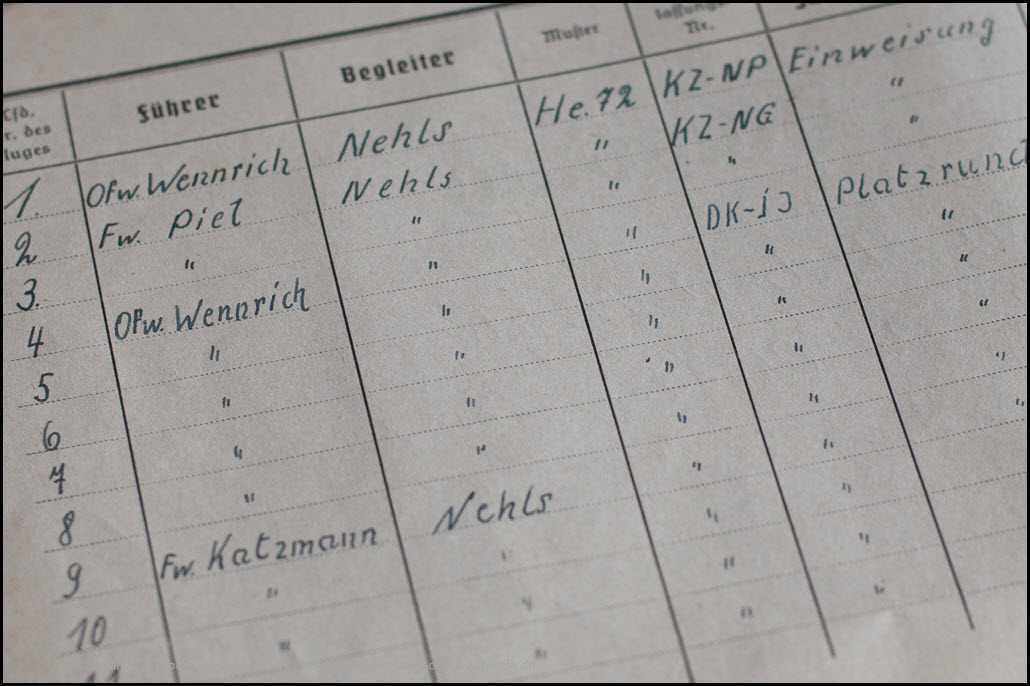 Führer Begleiter Muster Nr.
r. des
luges
1. Ofw. Wennrich Nehls He. 72 KZ-NP Einweisung
2 Fw. Piel Nehls " KZ-NG "
3. " " " " "
4 Ofw. Wennrich " " DK-IJ Platzrund
5 " " " " "
6 " " " " "
7 " " " " "
8 " " " " "
9 Fw. Katzmann Nehls " " "
10 " " " "
" " " "